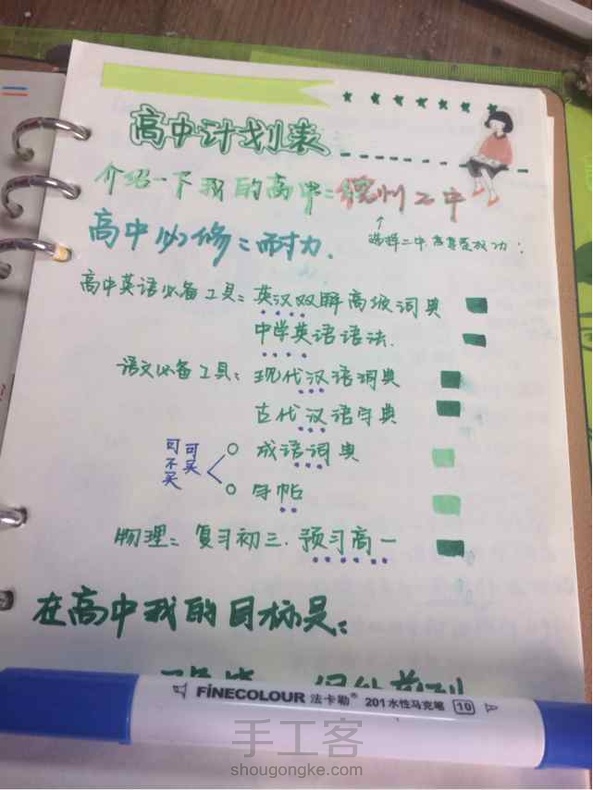 高中计划表
介绍一下我的高中:德州二中
高中必修:耐力.
选择二中,
高中英语必备工具:英汉双解高级词典
中学英语语法.
语文必备工具:现代汉语词典
古代汉语字典
可买可不买
成语词典
字帖
物理:复习初三.预习高一
在高中我的目标是:
FINECOLOUR 法卡勒® 201水性马克笔 10
手工客
shougongke.com